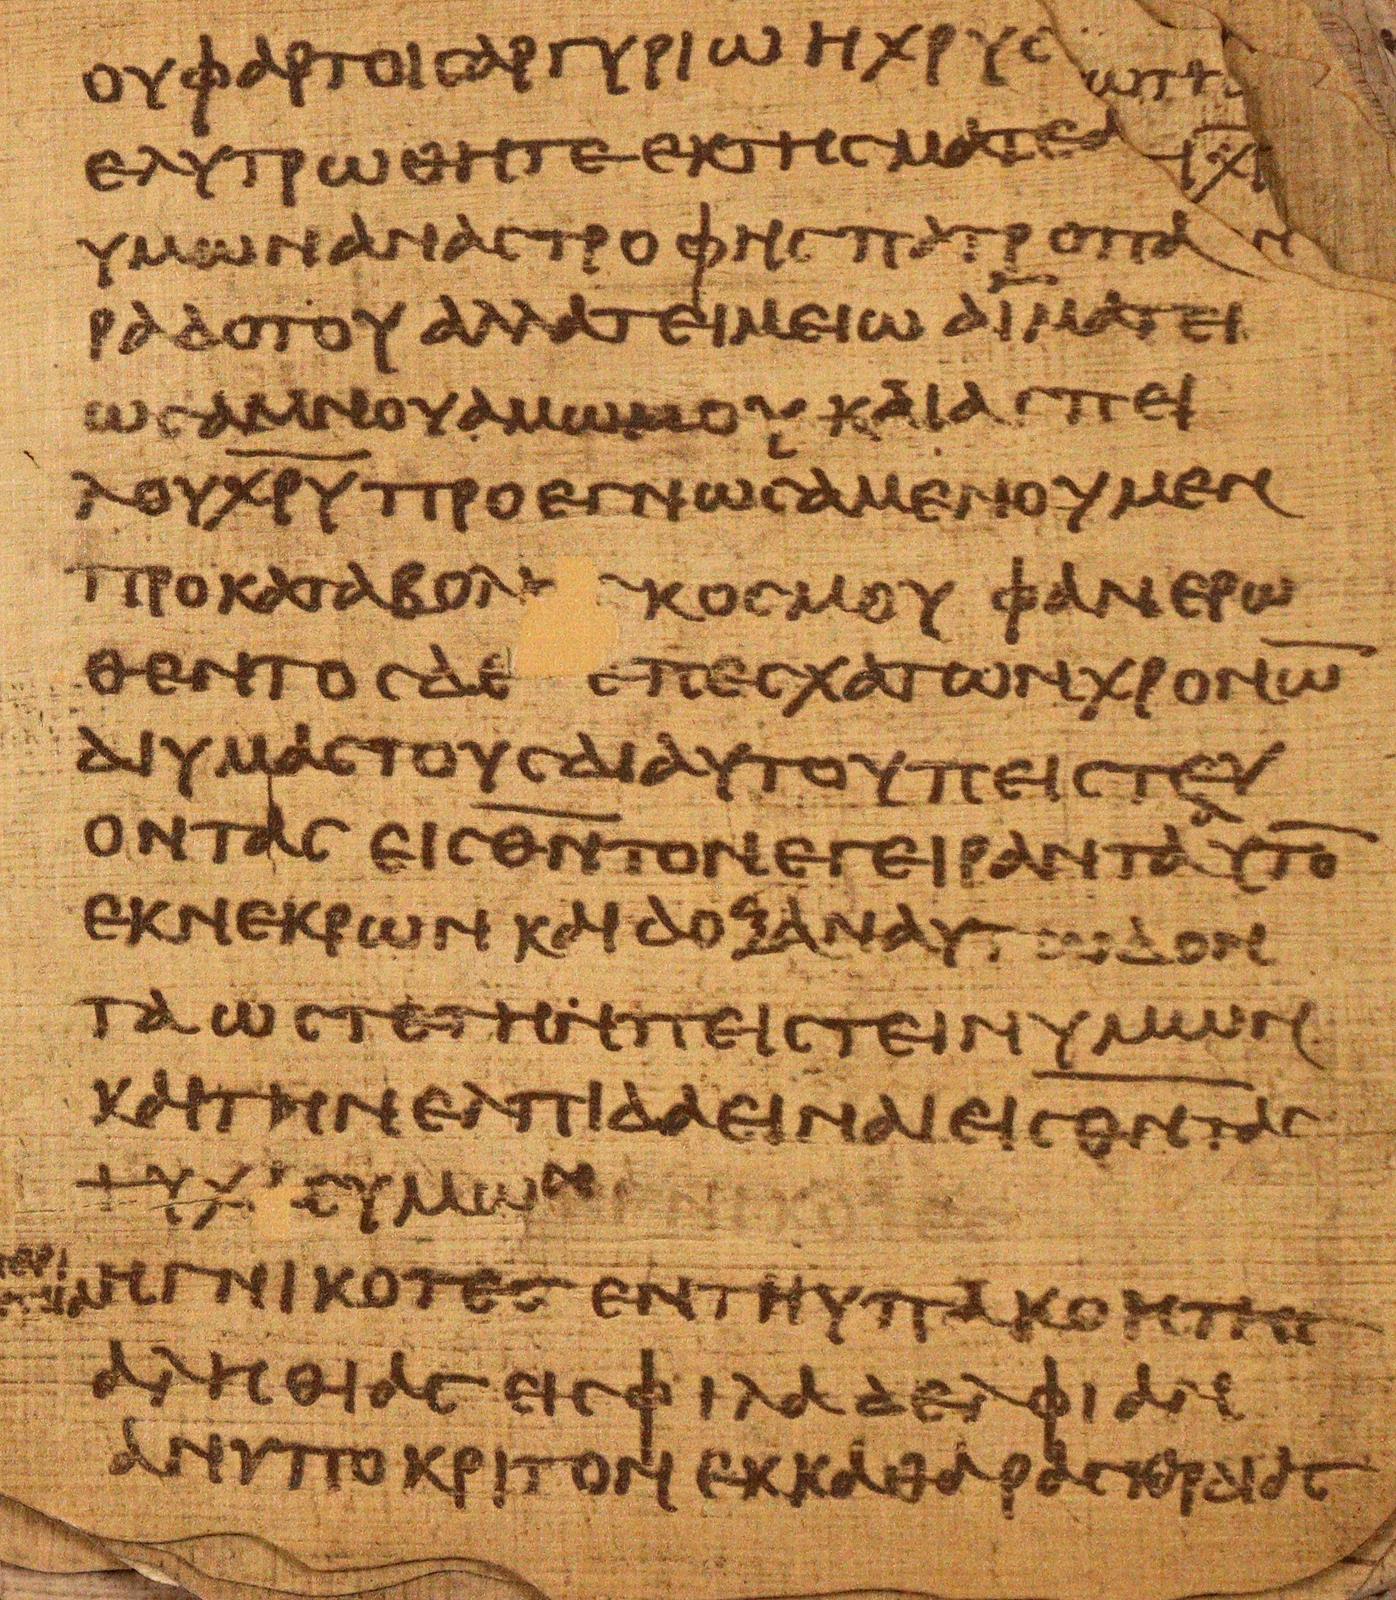 ου φαρτοις αργυριω η χρυς
ελυτρωθητε εκ της ματε
υμων αναστροφης πατροπα
ραδοτου αλλα τειμειω αιματει
ως αμνου αμωμου και ασπει
λου χρυ προεγνωσαμενου μεν
προ καταβολη κοσμου φανερω
θεντος δε επ εσχατων χρονω̅
δι υμας τους δι αυτου πειστευ
οντας εις θν τον εγειραντα αυτο̅
εκ νεκρων και δοξαν αυτ δον
τα ωστε την πειστειν υμων
και την ελπιδα ειναι εις θν τας
ψυχ ς υμων
ηγνικοτες εν τη υπακοη τησ
αληθιας εις φιλαδελφιαν
ανυποκριτον εκ καθαρας καρδιας